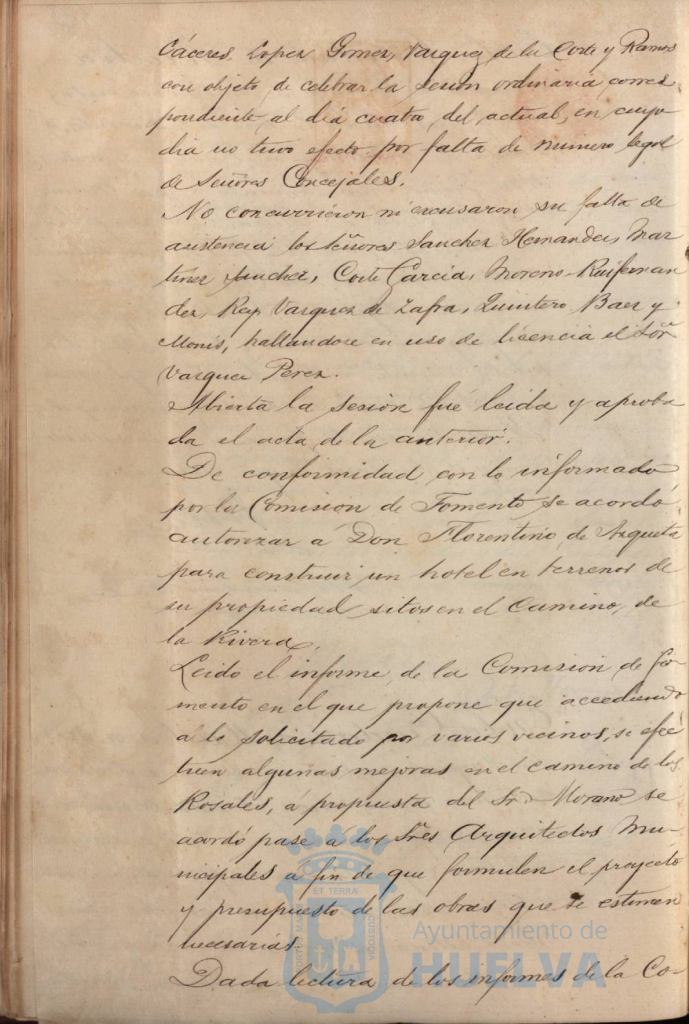 Cáceres, Lopez Gomez, Vazquez de la Corte y Ramos
con objeto de celebrar la sesion ordinaria corres
pondiente al dia cuatro, del actual, en cuyo
dia no tuvo efecto por falta de numero legal
de Señores Concejales.
No concurrieron ni excusaron su falta de
asistencia los Señores Sanchez Hernandez, Mar
tinez Sanchez, Corte Garcia, Moreno, Ruifernan
dez, Rey, Vazquez de Zafra, Quintero Baez y
Monis, hallandose en uso de licencia el Sor
Vazquez Perez.
Abierta la sesion fué leida y aproba
da el acta de la anterior.
De conformidad con lo informado
por la Comision de Fomento se acordó
autorizar á Don Florentino de Azqueta
para construir un hotel en terrenos de
su propiedad sitos en el Camino, de
la Rivera.
Leido el informe, de la Comision de Fo
mento en el que propone que accediendo
á lo solicitado por varios vecinos, se efec
tuen algunas mejoras en el camino de los
Rosales, á propuesta del Sr. Morano se
acordó pase á los Sres Arquitectos Mu-
nicipales á fin de que formulen el proyecto
y presupuesto de las obras que se estimen
necesarias.
Dada lectura de los informes de la Co-
PORTUS MARIS
ET TERRÆ
CUSTODIA
Ayuntamiento de
HUELVA